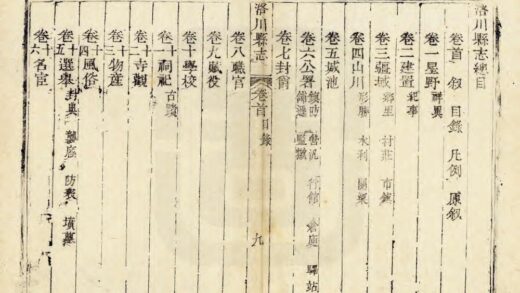 洛川縣志總目
卷首 叙 目錄 凡例 原叙
卷一星野 祥異
卷二建置 紀事
卷三疆域 鄉里 村莊 市鎮
卷四山川 形勝 水利 關梁
卷五城池
卷六公署 行館 倉廒 驛站 監獄
卷七封爵
洛川縣志 卷首 目錄 九
卷八職官
卷九賦役
卷十學校
卷十一祠祀 古蹟
卷十二寺觀
卷十三物産
卷十四風俗
卷十五選舉 封典 防表 墳墓
卷十六名宦